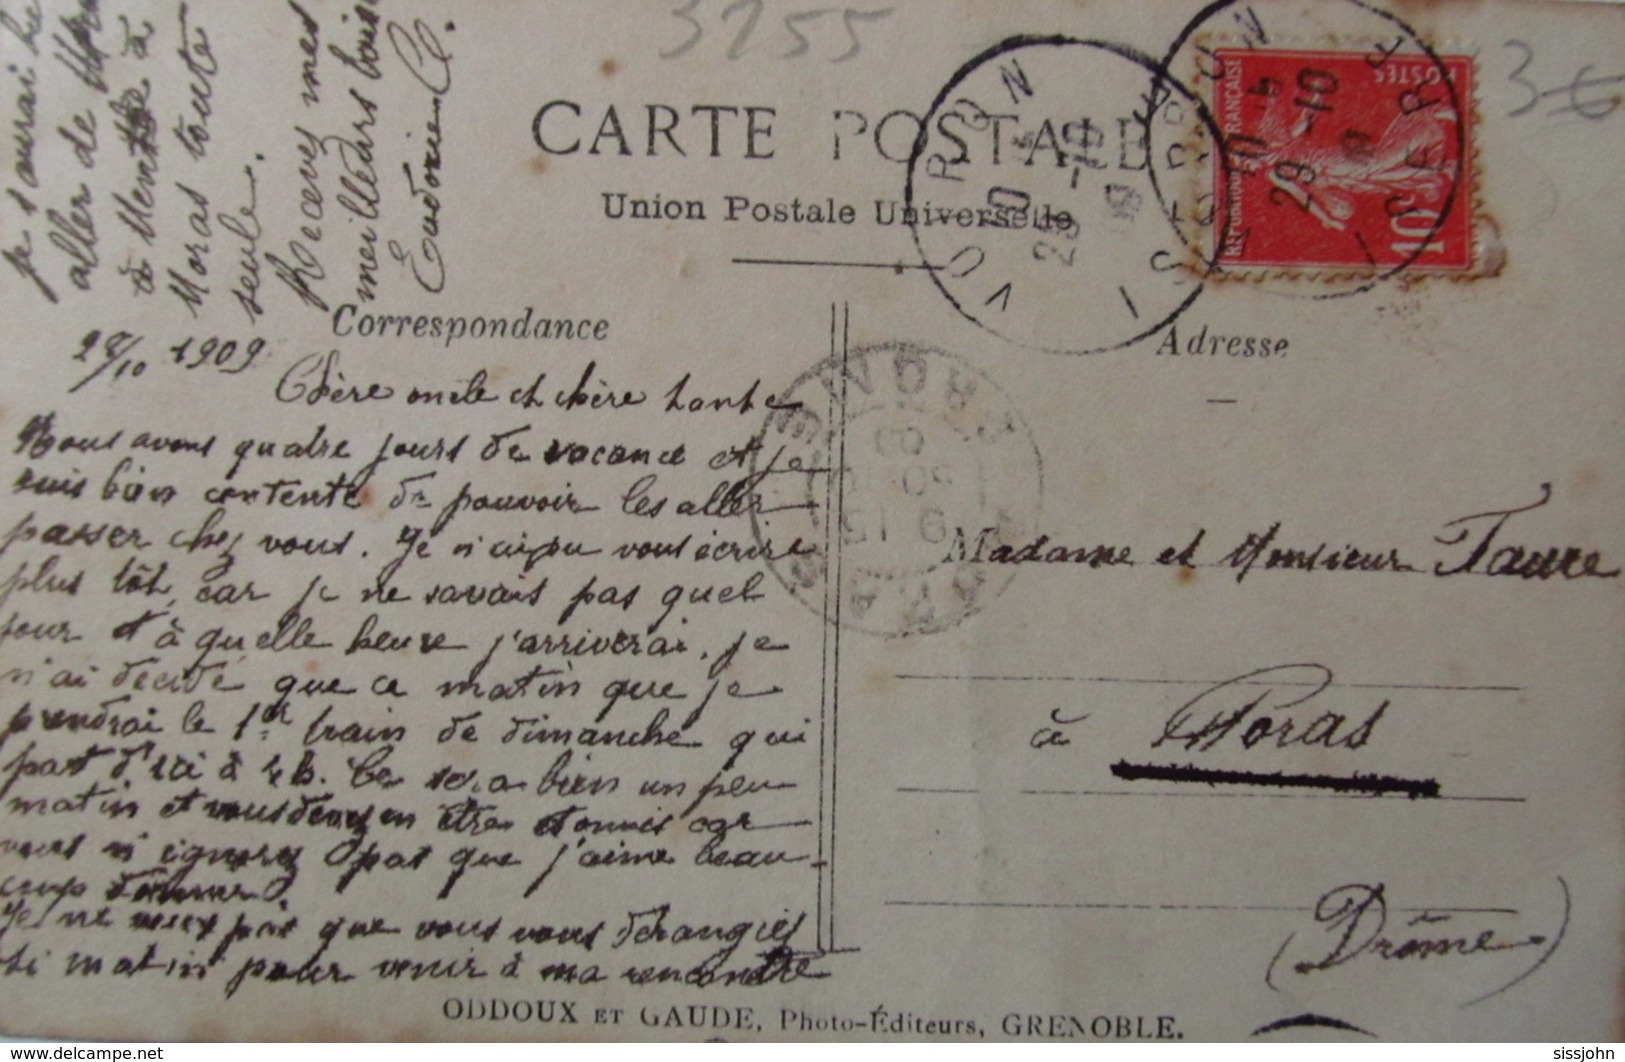 3255
3€
CARTE POSTALE
Union Postale Universelle
VOURON
ISÈRE
29-10
RÉPUBLIQUE FRANÇAISE
POSTES
10
Correspondance
Adresse
28/10 1909
Chère oncle et chère tante
Nous avons quatre jours de vacance et je
suis bien contente de pouvoir les aller
passer chez vous. Je n'ai pu vous écrire
plus tôt, car je ne savais pas quel
jour et à quelle heure j'arriverai. je
n'ai décidé que ce matin que je
prendrai le 1er train de dimanche qui
part d'ici à 4 h. Ce sera bien un peu
matin et vous devez en être etonnés car
vous n'ignorez pas que j'aime beau-
coup dormir.
Je ne veux pas que vous vous dérangiés
si matin pour venir à ma rencontre
je saurai
aller de
à
Moras toute
seule.
Recevez mes
meilleurs
Eudoxie C.
DROME
Madame et Monsieur Faure
à Moras
(Drôme)
ODDOUX ET GAUDE, Photo-Éditeurs, GRENOBLE.
www.delcampe.net
sissjohn